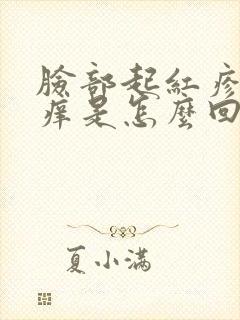 臉部起紅疹
痒是怎麼回
夏小满